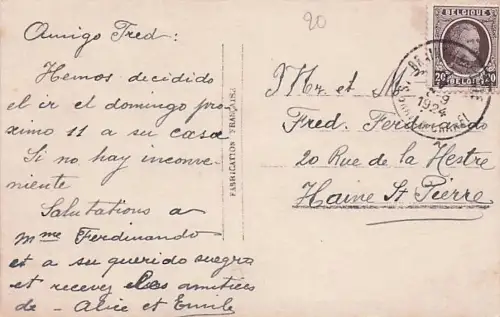 Amigo Fred:
Hemos decidido
el ir el domingo pro
ximo 11 a su casa
Si no hay inconve
niente
Salutations a
Mme Ferdinando
et a su querido suegro
et recevez les amitiés
de - Alice et Emile
FABRICATION FRANÇAISE
20
BELGIQUE
20 20
BELGIË
9
1924
Mr. et M
Fred. Ferdinando
20 Rue de la Hestre
Haine St Pierre